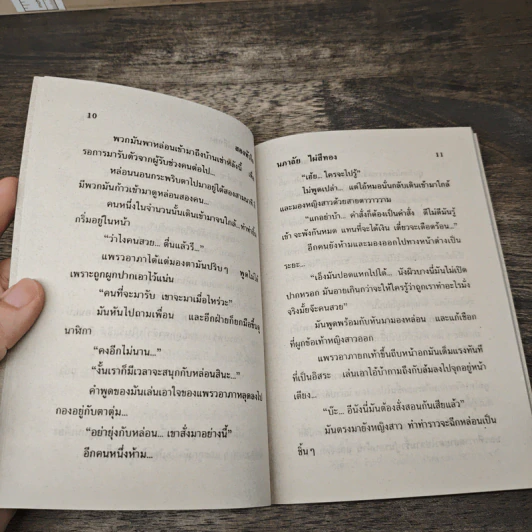 10
พวกมันพาหล่อนเข้ามาถึงบ้านเช่าหลังนี้
รอการมารับตัวจากผู้รับช่วงคนต่อไป...
หล่อนนอนกระพริบตาไปมาอยู่ได้สองสามนาที
มีพวกมันก้าวเข้ามาดูหล่อนสองคน...
คนหนึ่งในจำนวนนั้นเดินเข้ามาจนใกล้...
กริ่มอยู่ในหน้า
“ว่าไงคนสวย... ตื่นแล้วรึ...”
แพรวอาภาได้แต่มองตามันปริบๆ พูดไม่ได้
เพราะถูกผูกปากเอาไว้แน่น
“คนที่จะมารับ เขาจะมาเมื่อไหร่วะ”
มันหันไปถามเพื่อน และอีกฝ่ายก็ยกมือขึ้นดู
นาฬิกา
“คงอีกไม่นาน...”
“งั้นเราก็มีเวลาจะสนุกกับหล่อนสินะ...”
คำพูดของมันเล่นเอาใจของแพรวอาภาหลุดลงไป
กองอยู่กับตาตุ่ม...
“อย่ายุ่งกับหล่อน... เขาสั่งมาอย่างนี้”
อีกคนหนึ่งห้าม...
นภาลัย ไผ่สีทอง 11
“เฮ้ย... ใครจะไปรู้”
ไม่พูดเปล่า... แต่ไอ้หมอนั้นกลับเดินเข้ามาใกล้
และมองหญิงสาวด้วยสายตาวาววาม
“แกอย่าบ้า... คำสั่งก็ต้องเป็นคำสั่ง ดีไม่ดีมันรู้
เข้า จะพังกันหมด แทนที่จะได้เงิน เดี๋ยวจะเดือดร้อน...”
อีกคนยังห้ามและมองออกไปทางหน้าต่างเป็น
ระยะ...
“เอ็งมันปอดแหกไปได้... นังผิวบางนี่มันไม่เปิด
ปากหรอก มันอายเกินกว่าจะให้ใครรู้ว่าถูกเราทำอะไรมั่ง
จริงมั้ยจ๊ะคนสวย”
มันพูดพร้อมกับหันมามองหล่อน และแก้เชือก
ที่ผูกข้อเท้าหญิงสาวออก
แพรวอาภายกเท้าขึ้นถีบหน้าอกมันเต็มแรงทันที
ที่เป็นอิสระ เล่นเอาไอ้บ้ากามถึงกับล้มลงไปจุกอยู่หน้า
เตียง...
“บ๊ะ... อีนังนี่มันต้องสั่งสอนกันเสียแล้ว”
มันตรงมายังหญิงสาว ทำท่าราวจะฉีกหล่อนเป็น
ชิ้นๆ